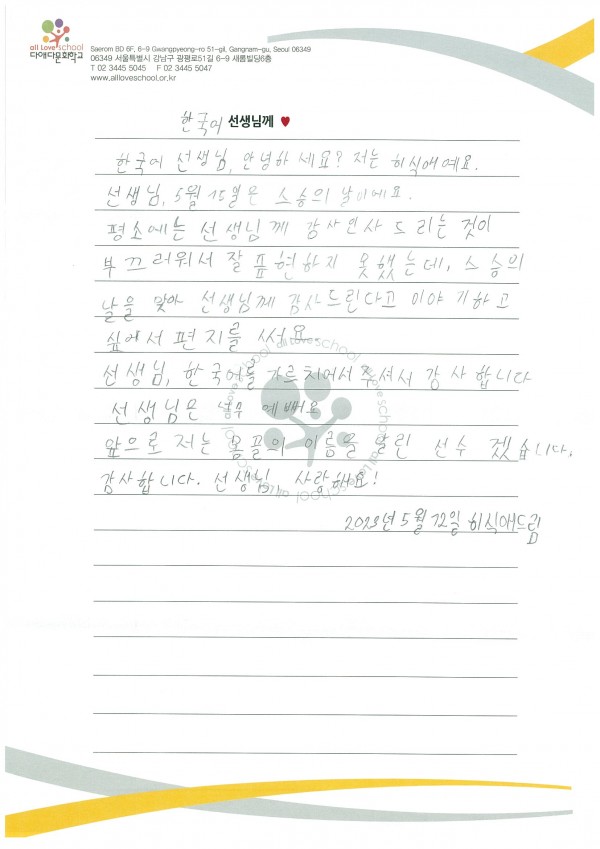 all Love school
다애다문화학교
Saerom BD 6F, 6-9 Gwangpyeong-ro 51-gil, Gangnam-gu, Seoul 06349
06349 서울특별시 강남구 광평로51길 6-9 새롬빌딩6층
T 02 3445 5045 F 02 3445 5047
www.allloveschool.or.kr
한국어 선생님께 ♥
한국어 선생님, 안녕하 세요? 저는 히식애예요.
선생님, 5월 15일은 스승의 날이에요.
평소에는 선생님께 감사인사 드리는 것이
부끄러워서 잘 표현하지 못했는데, 스승의
날을 맞아 선생님께 감사드린다고 이야기하고
싶에서 편지를 써요.
선생님, 한국어를 가르치어서 주셔서 감사합니다
선생님은 넘무 예뻐요
앞으로 저는 몽골의 이름을 알린 선수 겠습니다.
감사합니다. 선생님 사랑해요!
2023년 5월 12일 히식애드림